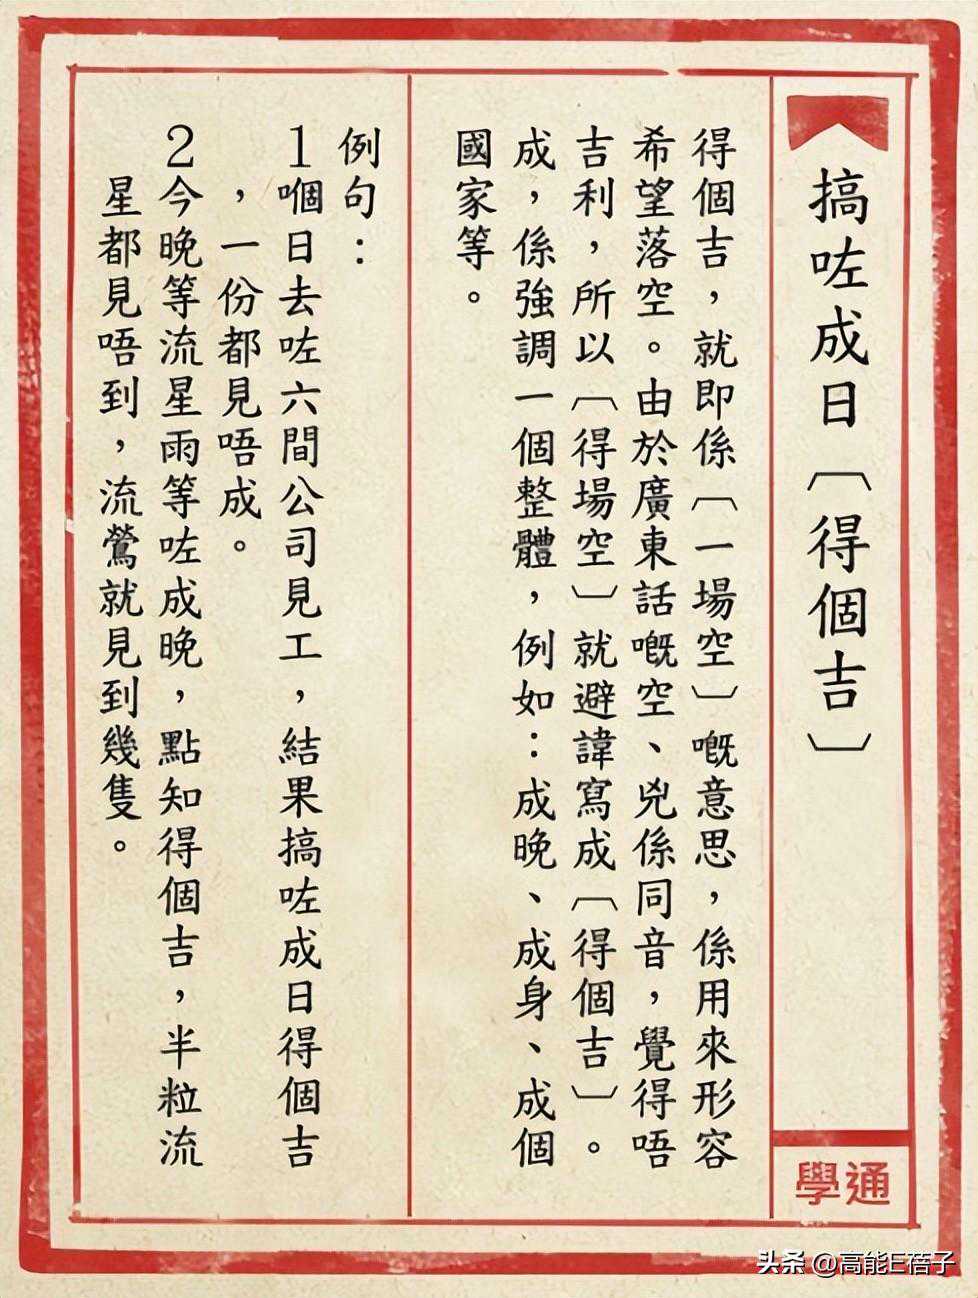 搞咗成日﹝得個吉﹞
通學
得個吉，就即係﹝一場空﹞嘅意思，係用來形容
希望落空。由於廣東話嘅空、兇係同音，覺得唔
吉利，所以﹝得場空﹞就避諱寫成﹝得個吉﹞。
成，係強調一個整體，例如：成晚、成身、成個
國家等。
例句：
1嗰日去咗六間公司見工，結果搞咗成日得個吉
，一份都見唔成。
2今晚等流星雨等咗成晚，點知得個吉，半粒流
星都見唔到，流鶯就見到幾隻。
头条 @高能E蓓子